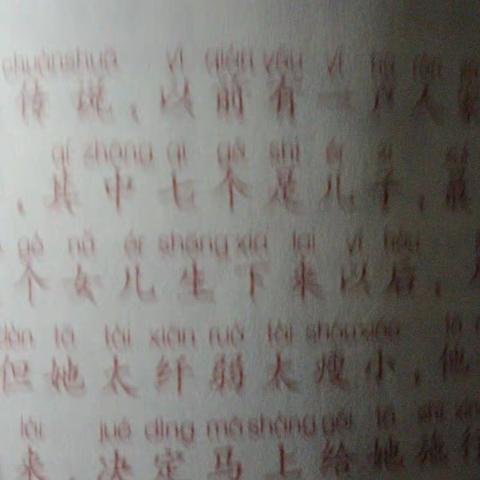 chuánshuō yǐ qián yǒu yī hù rén
传说,以前有一户人家
qí zhōng qī gè shì ér zi
,其中七个是儿子,最
gè nǚ ér shēng xià lái yǐ hòu
个女儿生下来以后,
dàn tā tài xiān ruò tài shòuxiǎo tā
但她太纤弱太瘦小,他
lái jué dìng mǎ shàng gěi tā shī xíng
来,决定马上给她施行